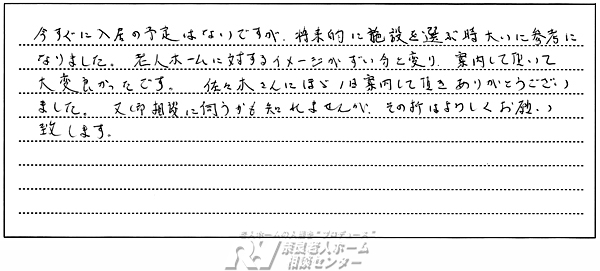 今すぐに入居の予定はないですが、将来的に施設を選ぶ時大いに参考に
なりました。老人ホームに対するイメージがずい分と変り、案内して頂いて
大変良かったです。佐々木さんにほぼ1日案内して頂きありがとうござい
ました。又御相談に伺うかも知れませんが、その折はよろしくお願い
致します。
老人ホームの入居を"プロデュース"
奈良老人ホーム
相談センター